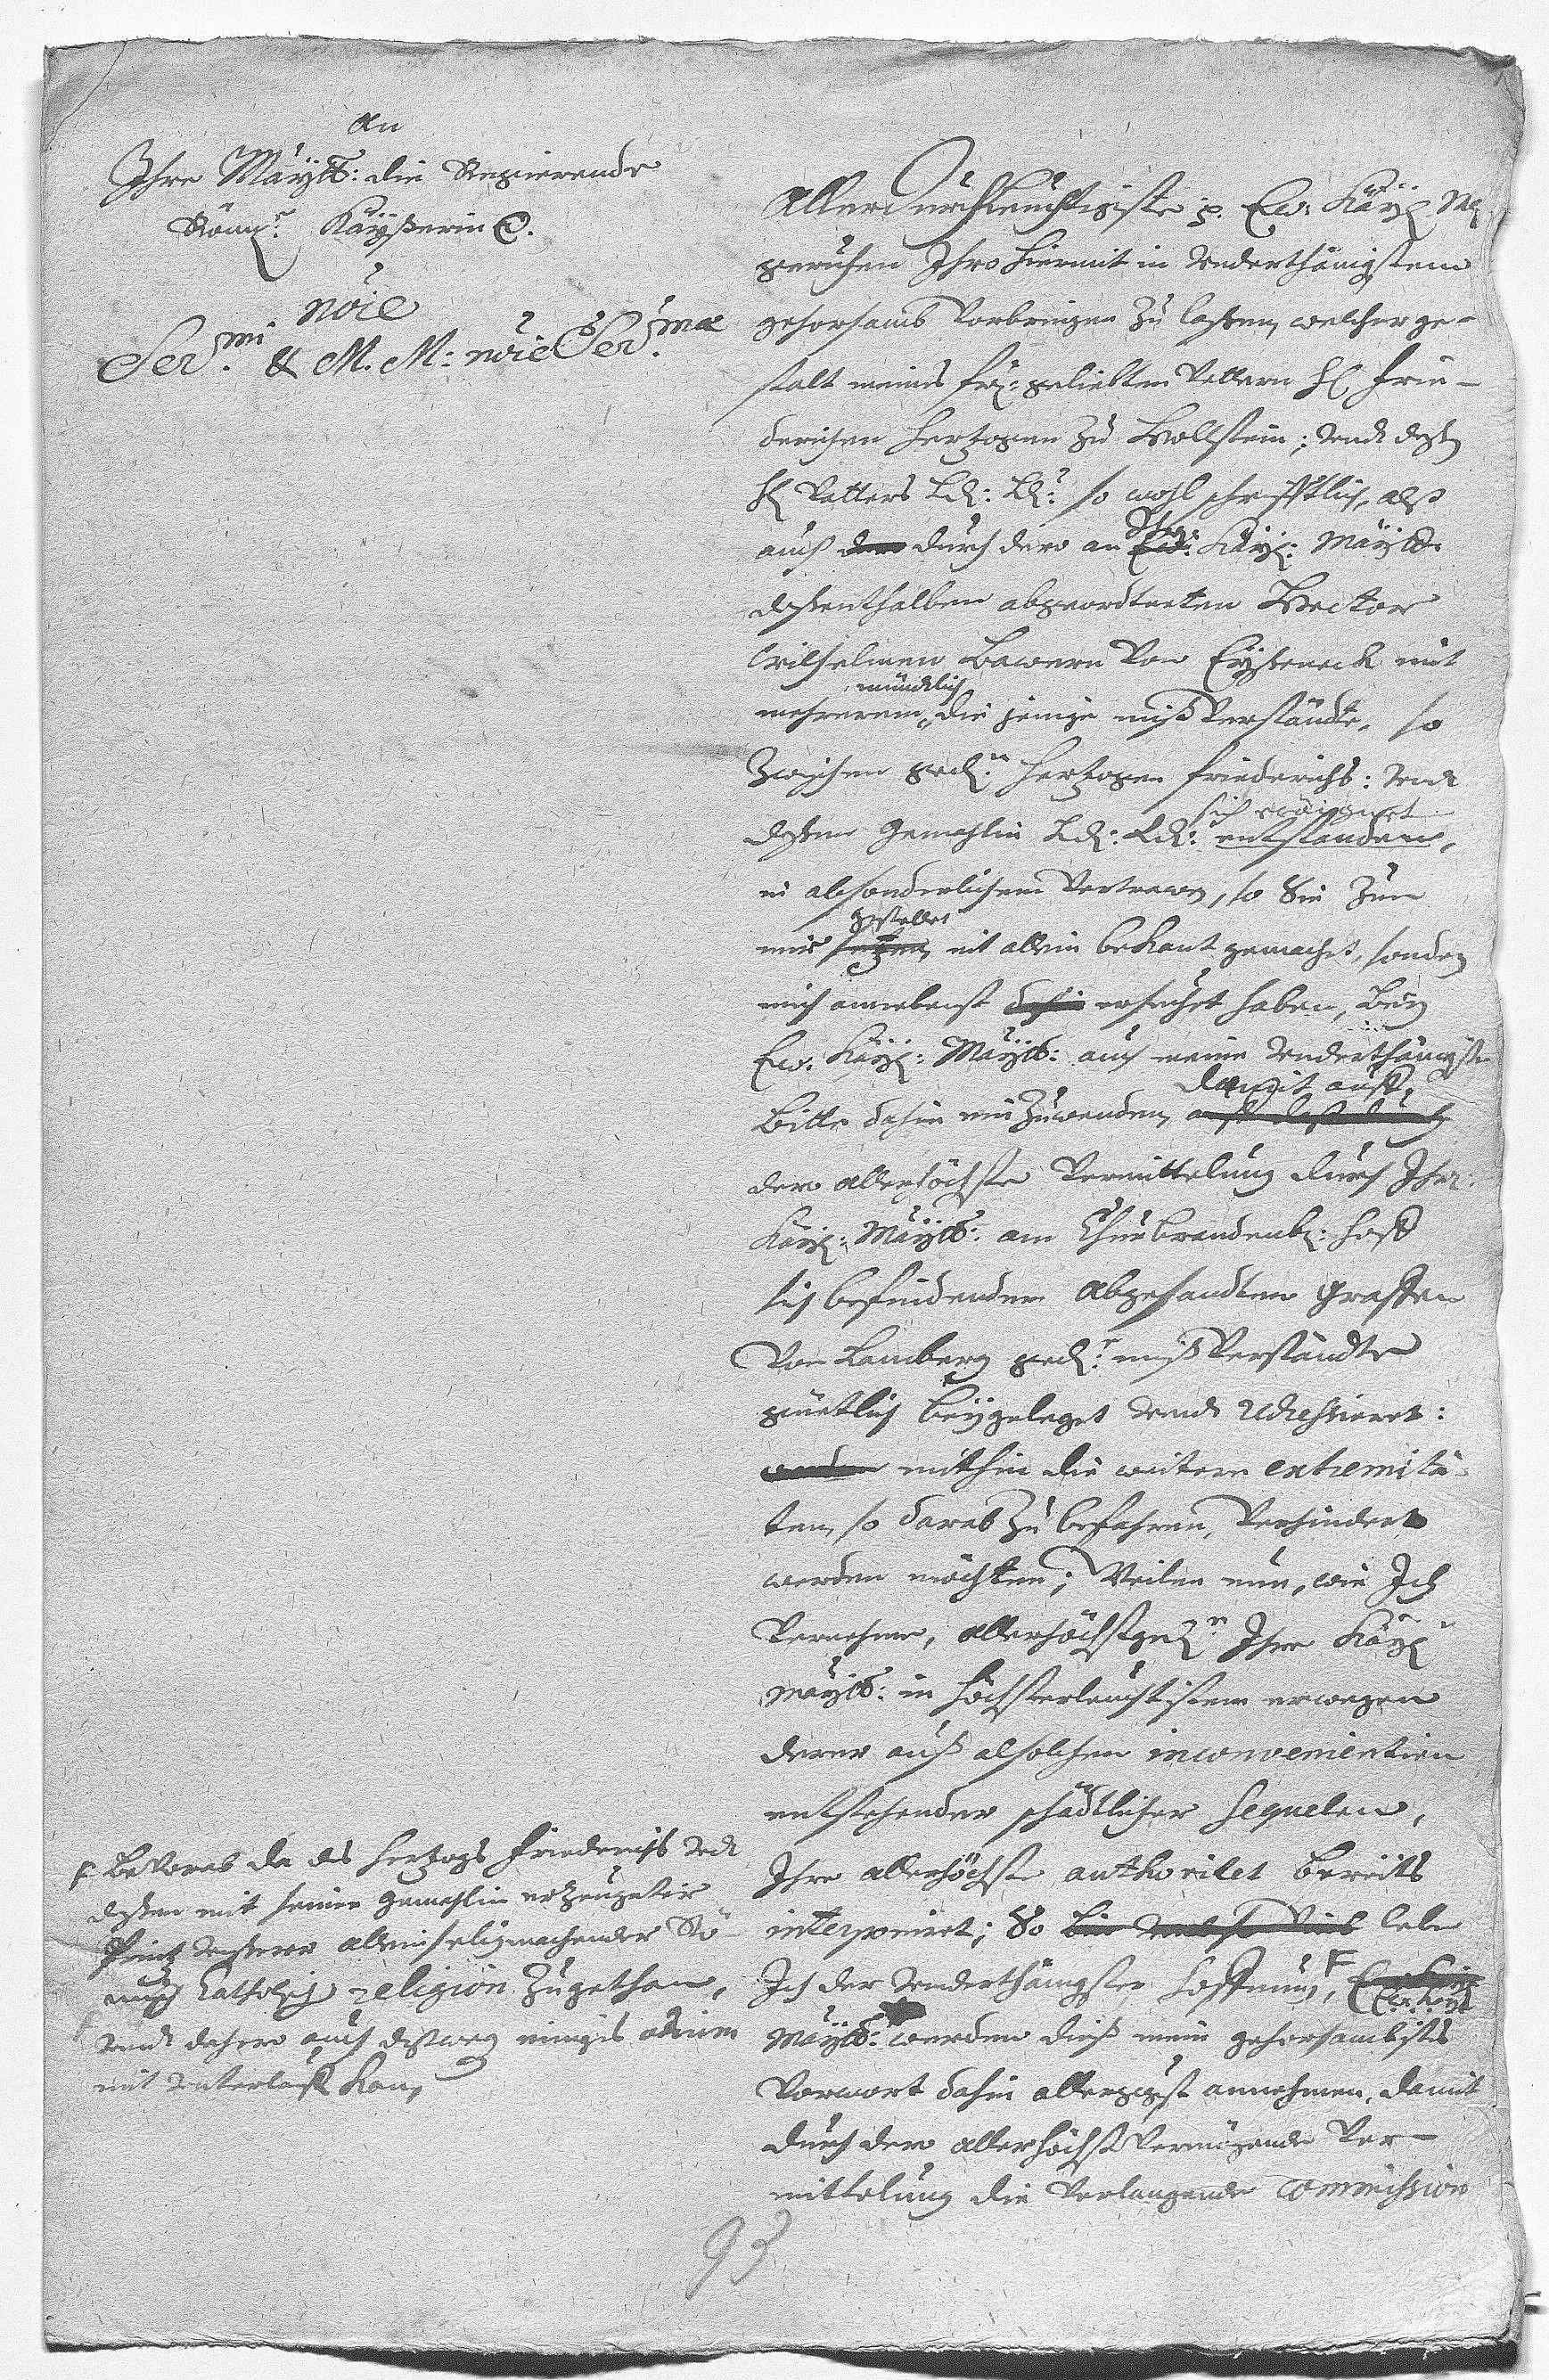 An
Ihre Mäytt: die Regierende
Römr. Käyßerin etc.
nõie
Sermi & M. M: nõie Sermæ
Allerdurchleuchtigiste p. Ew. Käyl Mt
geruhen Ihro hiermit in Underthänigstem
gehorsamb Vorbringen zu laßen, welcher ge-
stalt meines frl: geliebten Vettern H Frie-
derichen Hertzogen zu Hollstein; Undt deßen
H Vatters Ld: Ld: so wohl schrifftlich, alß
auch durch dero an Ihro Käyl: Mäytt.
deßenthalben abgeordtneten Hector
Wilhelmen Bawern Von Eyseneck mit
mehrerem, mündtlich die jenige mißVerständte, so
Zwischen gedn. Hertzogen Friederichs: Undt
deßen Gemahlin Ld: Ld: entstanden, sich eräignet
in absonderlichem Vertrawen, so Sie Zum
mir gestellet nit allein bekant gemacht, sondern
mich annebenst dahin ersuchet haben, bey
Ew. Käyl: Mäytt: auch meine Underthänigste
Bitte dahin einzuwenden, damit auff
dero allerhöchste Vermittelung durch Ihre
Käyl: Mäytt: am ChurBrandenb: Hoff
sich befindenden Abgesandten Graffen
Von Lamberg gedr. mißVerständte
güetlich beygeleget Undt adressieret:
mithin die weitere extremitä-
ten, so darab zu befahren, Verhindert
werden möchten; Weilen nun, wie Ich
Vernehme, allerhöchstgedn. Ihre Käyl
Mäytt: in höchsterleuchtistem erwegen
derer auß alsolchen inconvenientien
entstehender schädtlicher sequelen,
Ihre allerhöchste authoritet bereits
interponiret; So lebe
Ich der Underthänigster Hoffnung, F Ew. Käyl
Mäytt: werden dieß mein gehorsambstes
Vorwort dahin allergngst annehmen, damit
durch dero allerhöchst Vermögende Ver-
mittelung die Verlangende Commission
F BeVorab da des Hertzogs Friederichs Undt
deßen mit seiner Gemahlin erzeugeter
Printz Unserer allein seligmachender Rö
misch Catholisch religion Zugethan,
Undt dahero auch deßweg einiges
mit Unterlaufft kan,
93